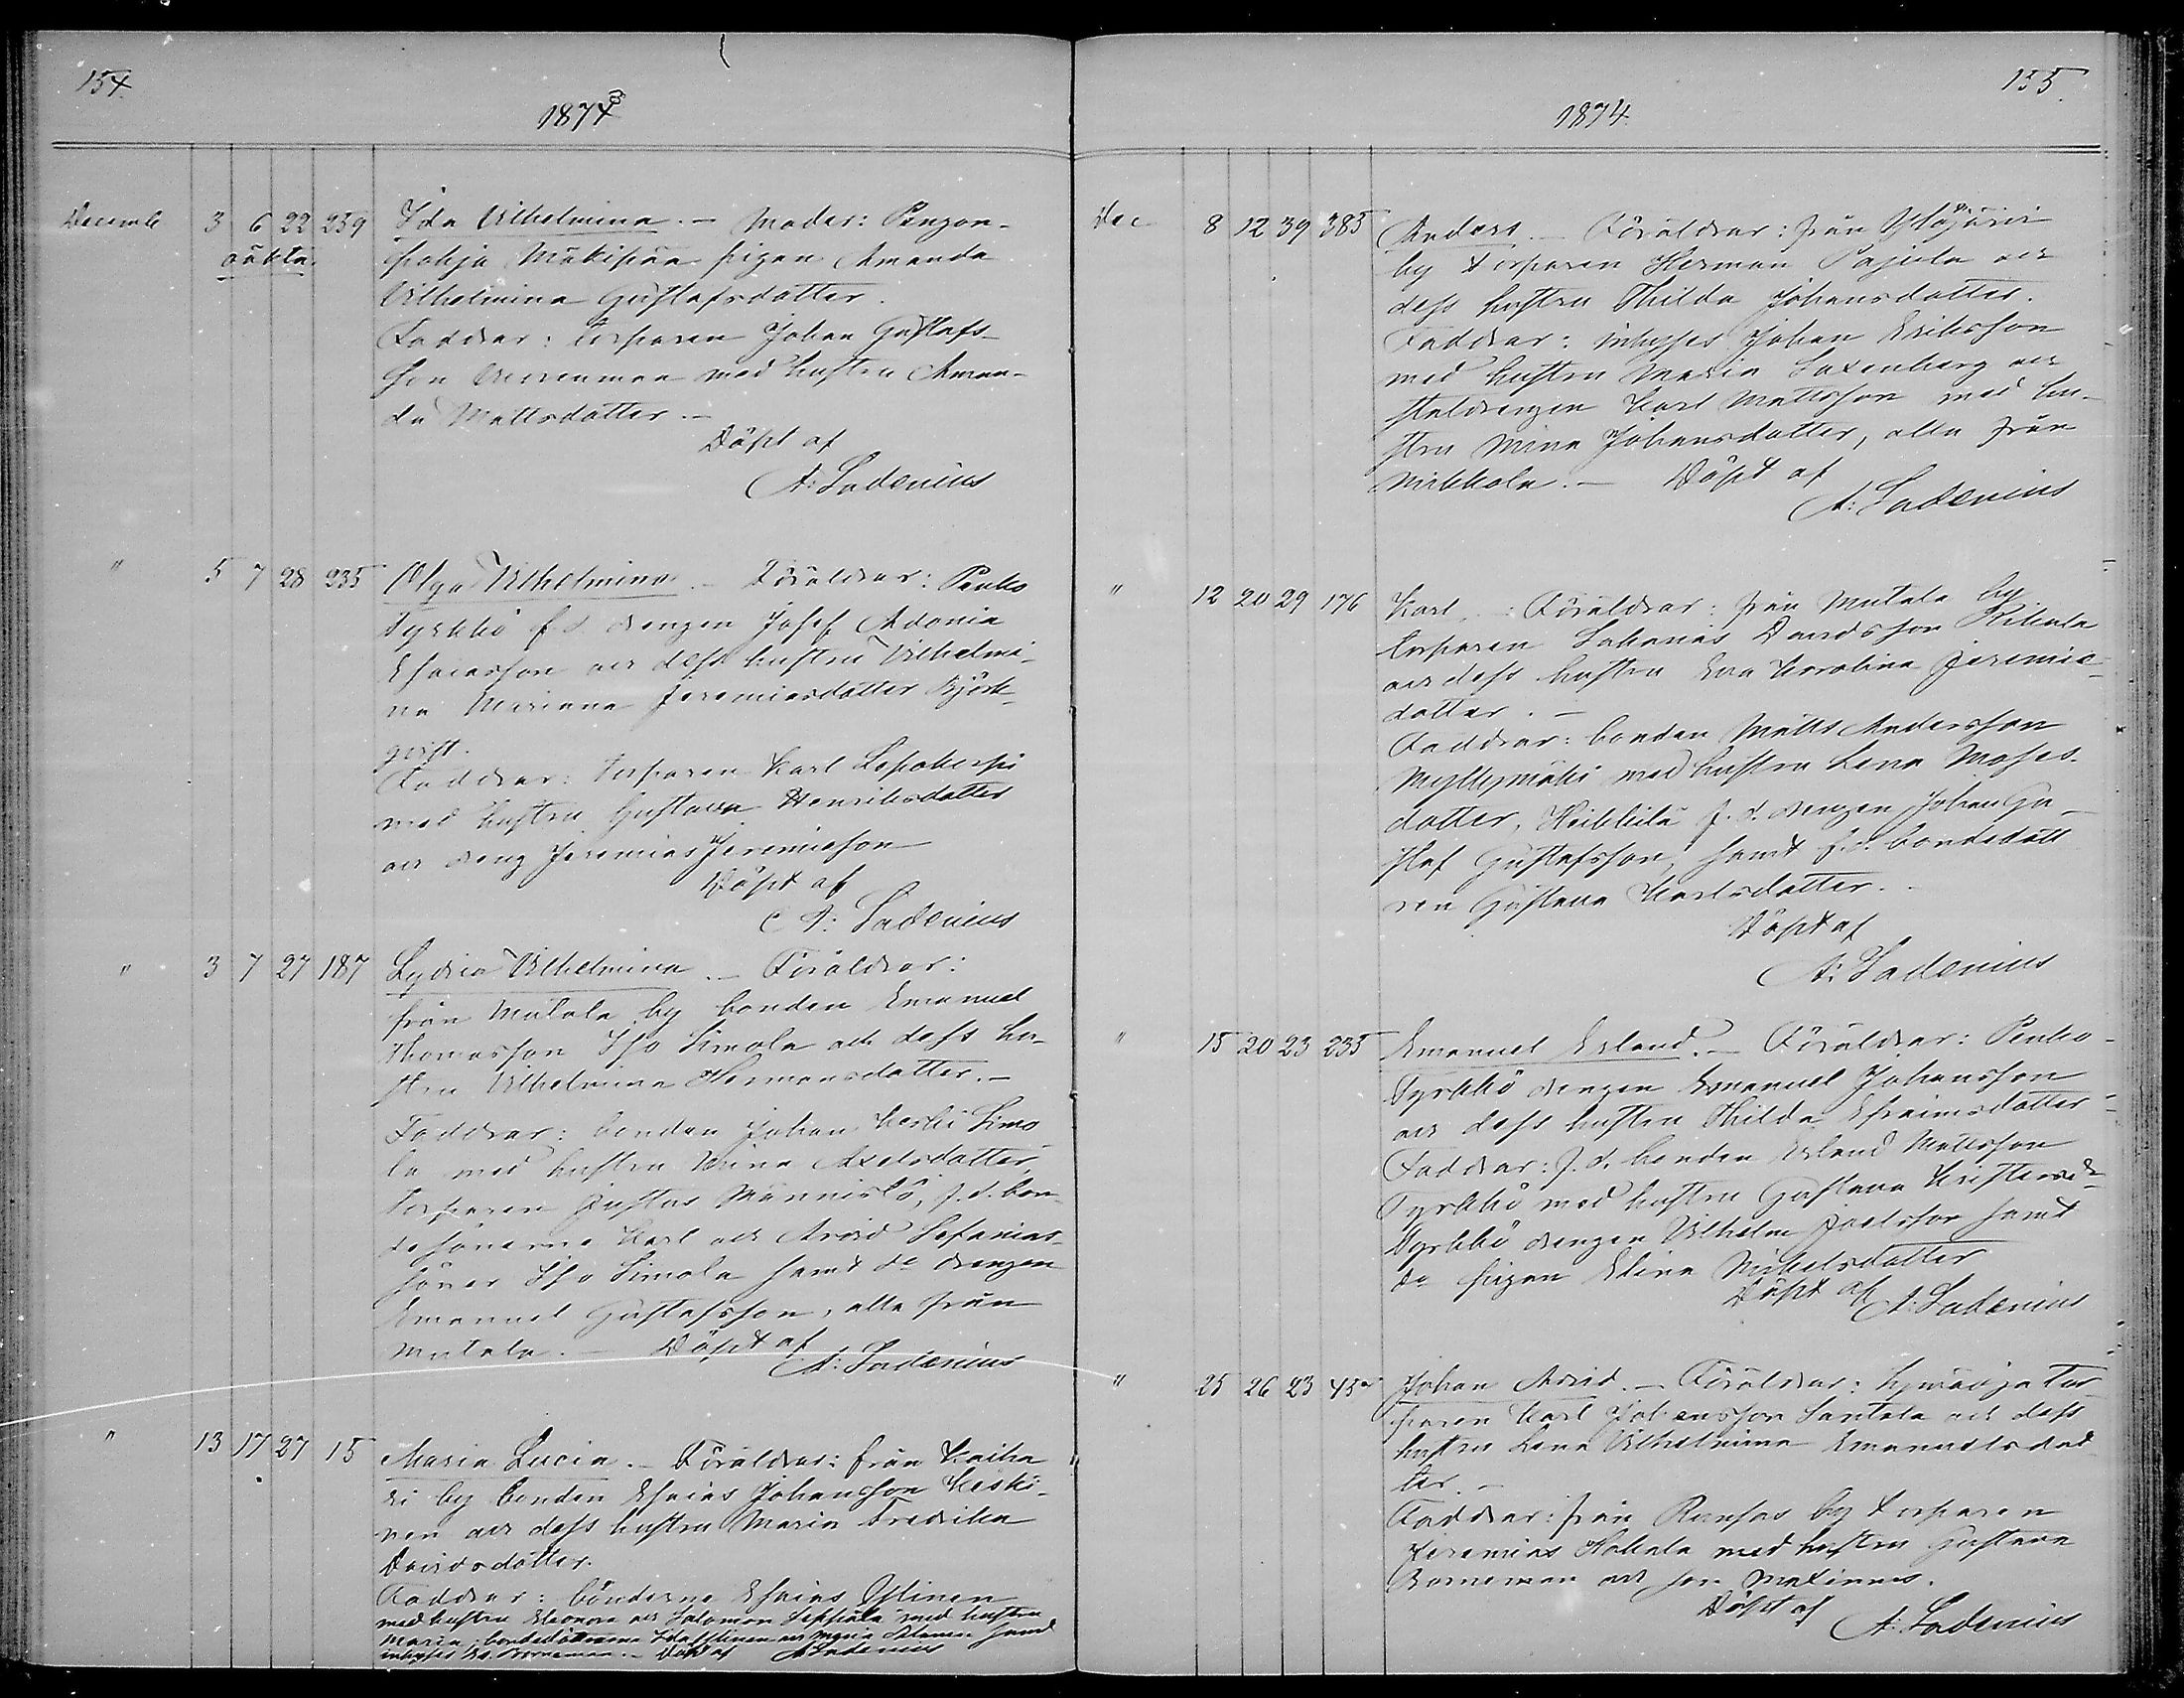 154.
1874 3
Decemb 3 6 22 239 Ida Vilhelmina. — Moder: Penzon-
oäkta. pohja Mäkipää pigan Amanda
Vilhelmina Gustafsdotter.
Faddrar: torparen Johan Gustafs-
son med hustru Aman-
da Mattsdotter. —
Döpt af
A: Ladenius
" 5 7 28 235 Olga Vilhelmina. — Föräldrar: Penko
Tyrkkö f.d. drengen Josef Adonia
Esaiasson och dess hustru Vilhelmi-
na Mariana Jeremiasdotter Björk-
qvist.
Faddrar: torparen Karl Lepokorpi
med hustru Gustava Henriksdotter
och dreng Jeremias Jeremiasson
Döpt af
A: Ladenius
" 3 7 27 187 Lydia Vilhelmina. — Föräldrar:
från Mutala by bonden Emanuel
Thomasson Iso Simola och dess hu-
stru Vilhelmina Hermansdotter. —
Faddrar: bonden Johan Keski Simo
la med hustru Mina Axelsdotter,
torparen Justus Männistö, f.d. bon-
desönerna Karl och Arvid Sefanias-
söner Iso Simola samt do drengen
Emanuel Gustafsson, alla från
Mutala. — Döpt af
A: Ladenius
" 13 17 27 15 Maria Lucia. — Föräldrar: från Kaiha
ri by bonden Esaias Johansson Keski-
nen och dess hustru Maria Fredrika
Davidsdotter.
Faddrar: bönderne Esaias Yllinen
med hustru Eleonora och Salomon Seppälä med hustru
Maria, bondedöttrarna Ida Yllinen och Maria samt
inhyses Borneman. — Döpt af A: Ladenius
155.
1874.
Dec 8 12 39 385 Anders. — Föräldrar: från Ylöjärvi
by torparen Herman Pajula och
dess hustru Thilda Johansdotter.
Faddrar: inhyses Johan Eriksson
med hustru Maria Laxenberg och
stalldrengen Karl Mattsson med hu-
stru Mina Johansdotter, alla från
Mikkola. — Döpt af
A: Ladenius
" 12 20 29 176 Karl. : Föräldrar: från Mutala by
torparen Johannes Davidsson Rikala
och dess hustru Eva Karolina Jeremie-
dotter. —
Faddrar: bonden Matts Andersson
Myllymäki med hustru Lena Moses-
dotter, Heikkilä f.d. drengen Johan Gu-
staf Gustafsson, samt f.d. bondedott
ren Gustava Karlsdotter.
Döpt af
A: Ladenius
" 15 20 23 235 Emanuel Erland. — Föräldrar: Penko-
Tyrkkö drengen Emanuel Johansson
och dess hustru Thilda Efraimsdotter
Faddrar: f.d. bonden Erland Mattsson
Tyrkkö med hustru Gustava Kristersdr
Tyrkkö drengen Vilhelm Joelsson samt
do pigan Elina Mikelsdotter
Döpt af A: Ladenius
" 25 26 23 45 Johan Arvid. — Föräldrar: Kyröoja tor-
paren Karl Johansson Santala och dess
hustru Lena Vilhelmina Emanuelsdot
ter. —
Faddrar: från Runsas by torparen
Jeremias Hakala med hustru Gustava
Borneman och son Maximus.
Döpt af
A: Ladenius